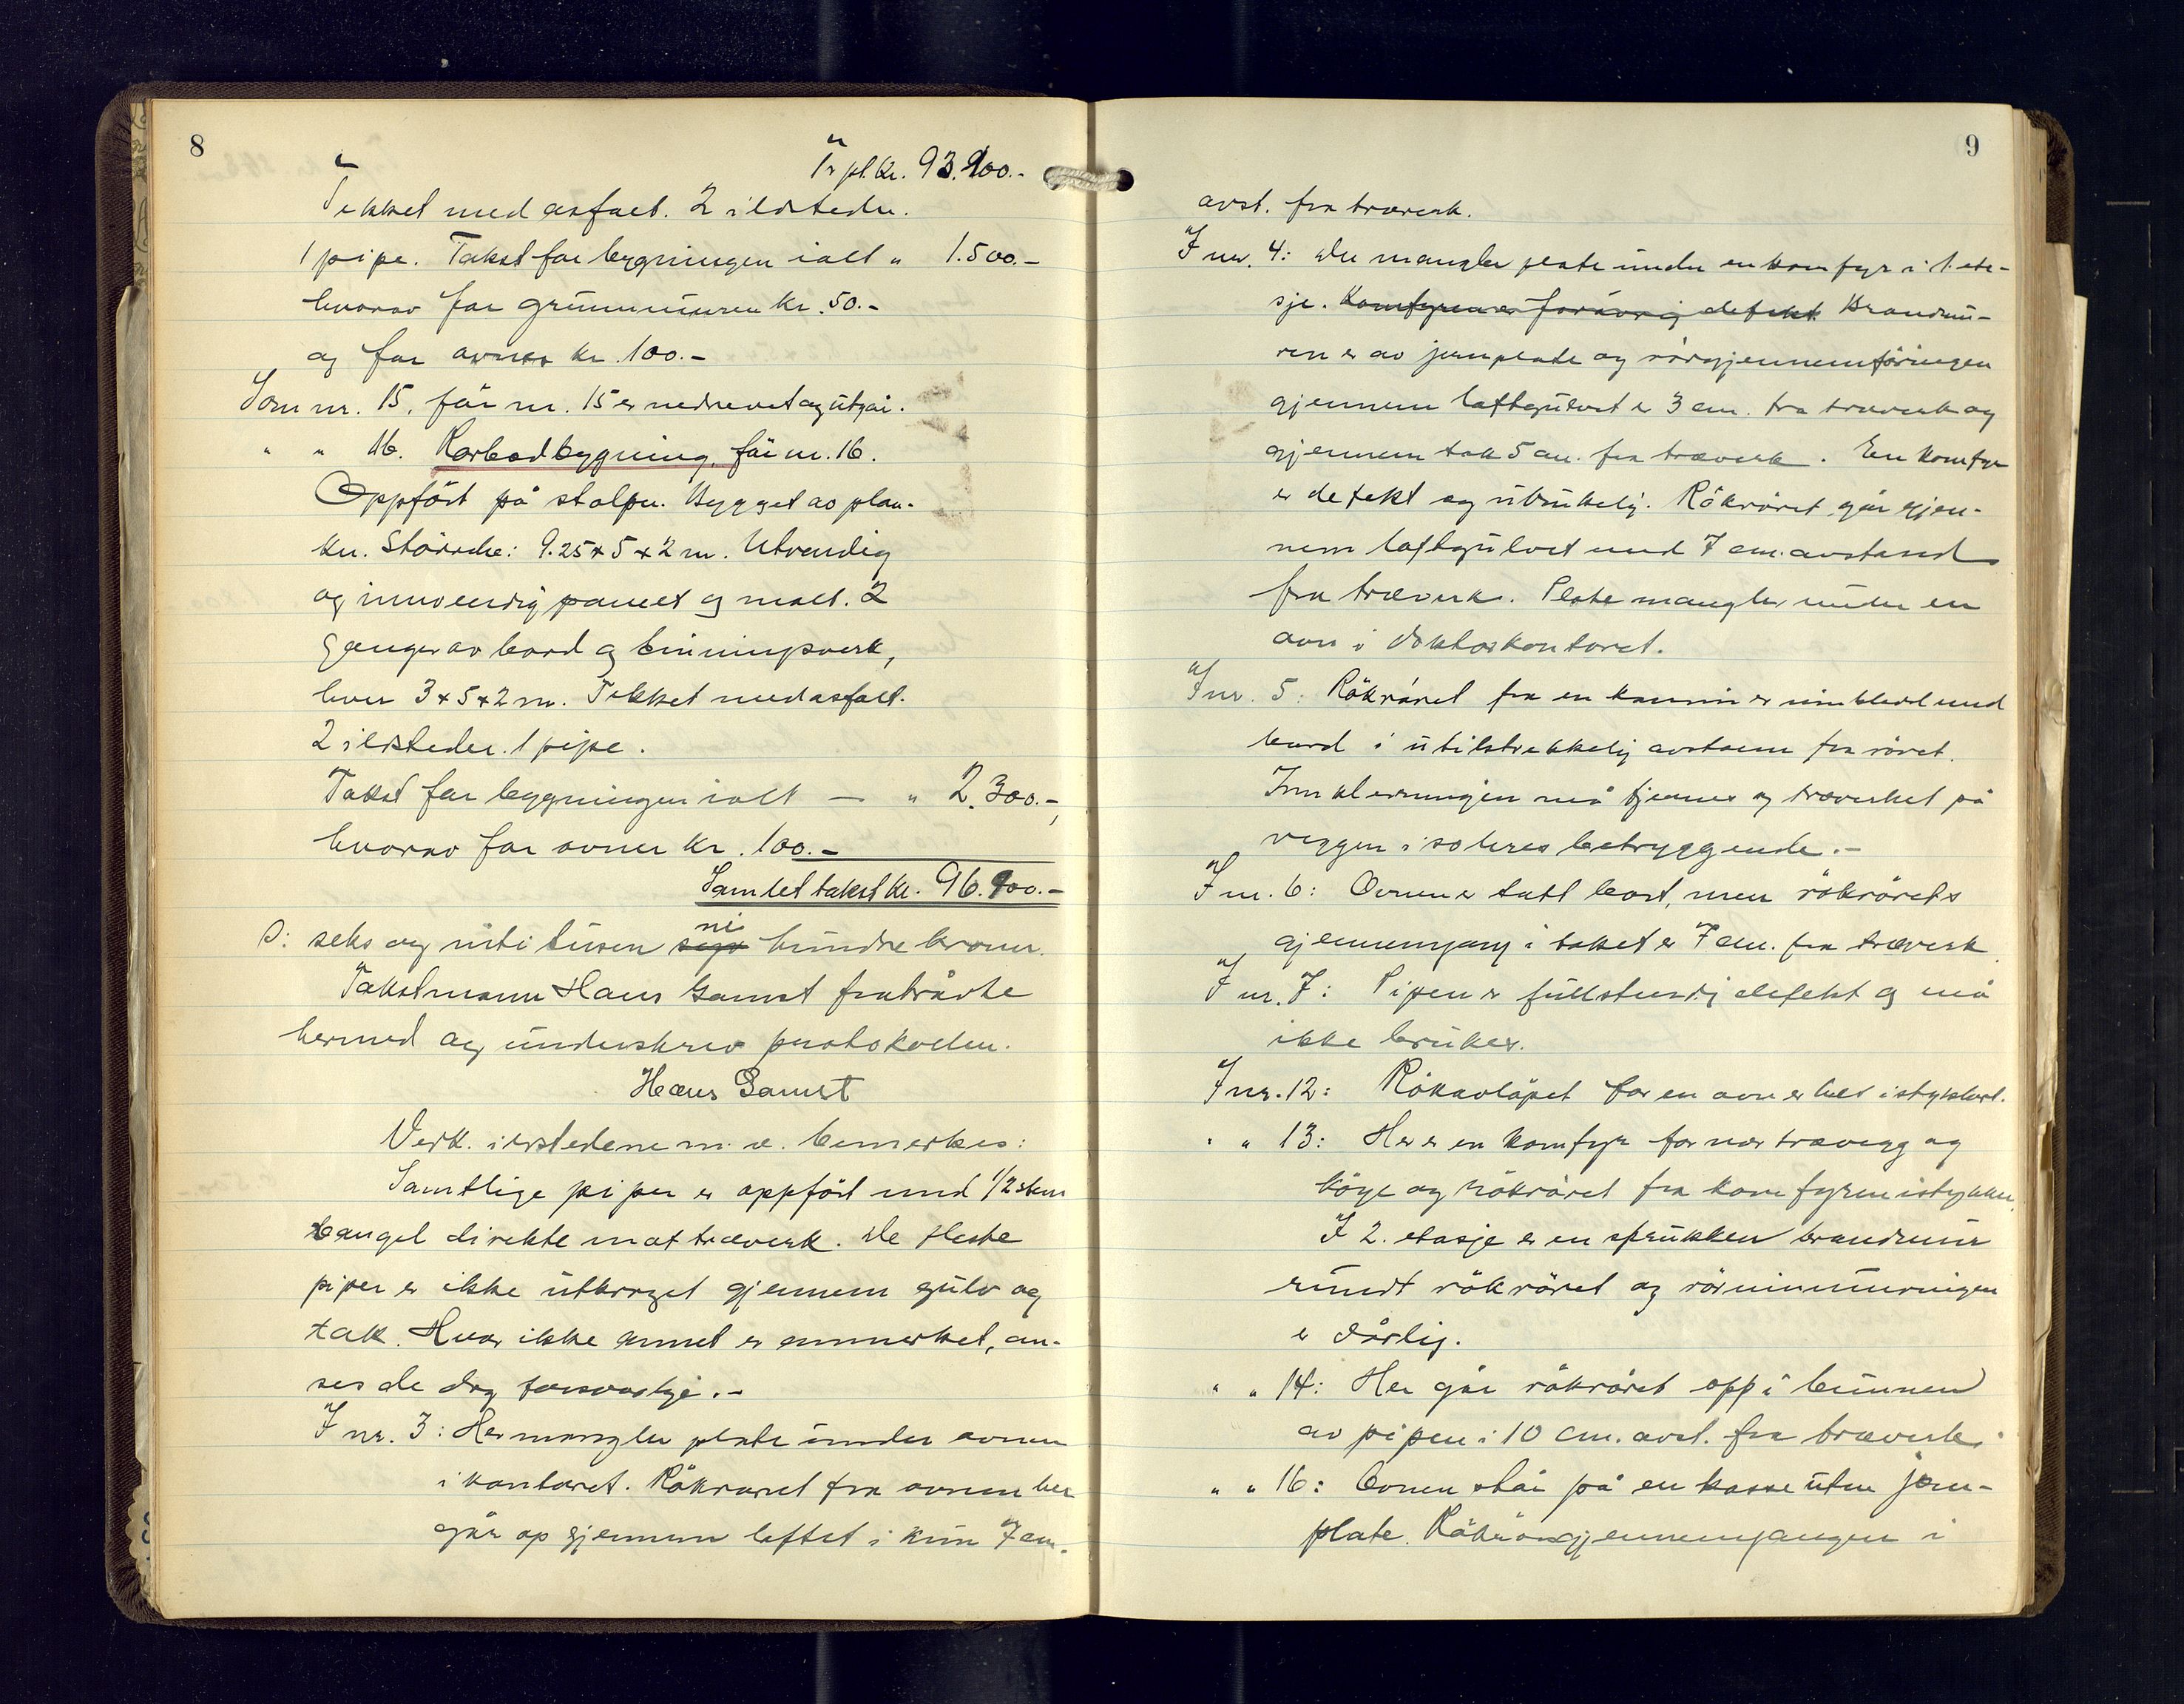 8
Tr pl. Kr. 93.900.-
Tekket med asfalt. 2 ildsteder.
1 pipe. Takst for bygningen ialt " 1.500.-
hvorav for grunnmuren kr. 50.-
og for ovner kr. 100.-
Som nr. 15, før nr. 15 er nedrevet og utgår.
" " 16. Karbadbygning, før nr. 16.
Oppført på stolper. Bygget av plan-
ker. Större: 9.25 x 5 x 2 m. Utvendig
og innvendig panelt og malt. 2
ganger av bord og binningsverk,
hver 3 x 5 x 2 m. Tekket med asfalt.
2 ildsteder. 1 pipe.
Takst for bygningen ialt — " 2.300.-,
hvorav for ovner kr. 100.-
Samlet takst kr. 96.900.-
D: seks og nitti tusen ni hundre kroner.
Takstmann Hans Gamst fratrådte
hermed og underskrev protokollen.
Hans Gamst
Vedk. ildstedene m. v. bemerkes:
Samtlige piper er oppført med 1/2 stens
vangel direkte mot træverk. De fleste
piper er ikke utkraget gjennem gulv og
tak. Hvor ikke annet er anmerket, an-
ses de dog forsvarlige.-
I nr. 3: Her mangler plate under ovnen
i kontoret. Rökröret fra ovnen her
går op gjennem loftet i kun 7 cm.
9
avst. fra træverk.
I nr. 4: Der mangler plate under en komfyr i 1. eta-
sje. Komfyren er forövrig defekt Brandmu-
ren er av jernplate og rörgjennemföringen
gjennem loftgulvet er 3 cm. fra træverk og
gjennem tak 5 cm. fra træverk. En komfyr
er defekt og ubrukelig. Rökröret går gjen-
nem loftgulvet med 7 cm. avstand
fra træverk. Plate mangler under en
ovn i doktorkontoret.
I nr. 5: Rökröret fra en kamin er innkledd med
bord i utilstrekkelig avstann fra röret.
Innkledningen må fjernes og træverket på
veggen isoleres betryggende.-
I nr. 6: Ovnen er tatt bort, men rökrörets
gjennemgang i taket er 7 cm. fra træverk.
I nr. 7: Pipen er fullstendig defekt og må
ikke brukes.
I nr. 12: Rökavlöpet for en ovn er helt istykker.
" " 13: Her er en komfyr for nær trævegg og
böye og rökröret fra komfyren istykker.
I 2. etasje er en sprukken brandmur
rundt rökröret og rörinnmuringen
er dårlig.
" " 14: Her går rökröret opp i bunnen
av pipen i 10 cm. avst. fra træverk.
" " 16: Ovnen står på en kasse uten jern-
plate. Rökrörgjennemgangen i